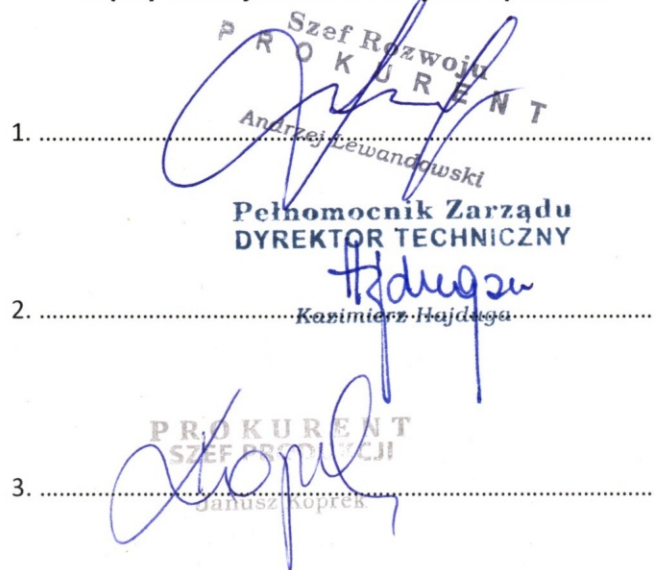 Szef Rozwoju
PROKURENT
Andrzej Lewandowski
1. ....................................................................................................
Pełnomocnik Zarządu
DYREKTOR TECHNICZNY
Hajduga
2. ....................................................................................................
Kazimierz Hajduga
PROKURENT
SZEF PRODUKCJI
3. ....................................................................................................
Janusz Koprek